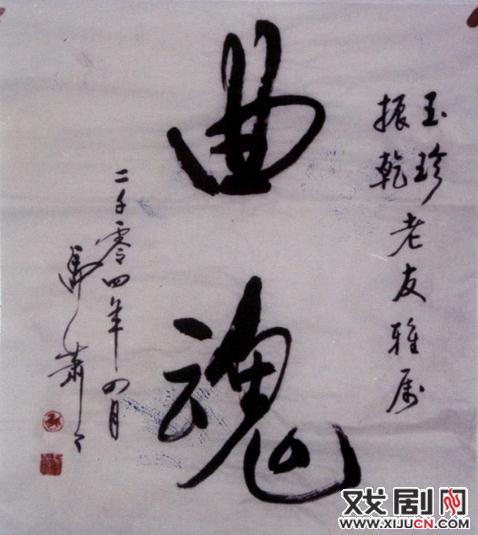 玉珍
振乾
老友雅属
曲魂
二千零四年四月
馬萧々
戏剧网
WWW.XIJUCN.COM